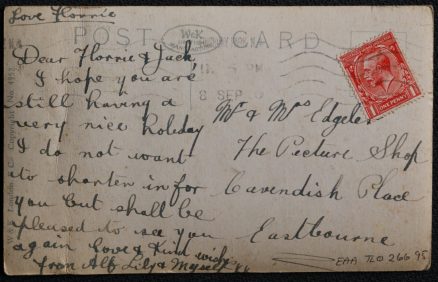 Love Florrie
POST CARD
W&K
8 SEP
ONE PENNY
Dear Florrie & Jack,
I hope you are
still having a
very nice holiday
I do not want
to shorten in for
you but shall be
pleased to see you
again Love & Kind wishes
from Alf Lily & Myself
Mr & Mrs Edgeler
The Picture Shop
Cavendish Place
Eastbourne
EAA 110 266 95